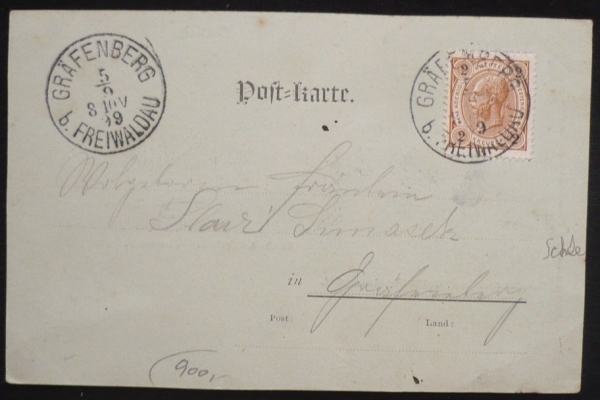 GRÄFENBERG
5/9
8 10V
99
b. FREIWALDAU
Post-karte.
GRÄFENBERG
2 2
9
2
b. FREIWALDAU
Wolgeboren Fräulein
Simasek
in Gräfenberg
Post: Land:
900,-